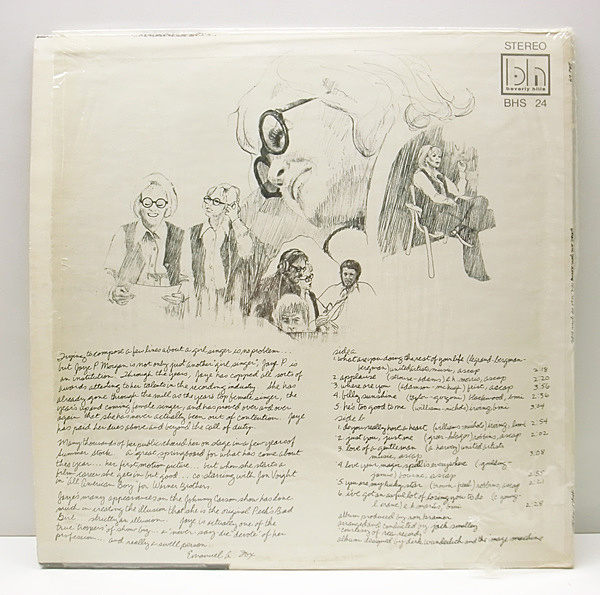 STEREO
bh
beverly hills
BHS 24
Trying to compose a few lines about a girl singer is no problem...
but Jaye P. Morgan is not only just another "girl singer," Jaye P. is
an institution. Through the years, Jaye has copped all sorts of
awards attesting to her talents in the recording industry. She has
already gone through the mill as the year's top female singer, the
year's up and coming female singer, and has proved over and over
again that she has never actually been out of contention. Jaye
has paid her dues above and beyond the call of duty.
Many thousands of her public cheered her on stage in a few years of
summer stock. a great springboard for what has come about
this year... her first motion picture... but when she starts a
film career she gets in but good... co starring with Jon Voight
in "All American Boy" for Warner Brothers.
Jaye's many appearances on the Johnny Carson show has done
much in creating the illusion that she is the original Peck's Bad
Girl. strictly an illusion. Jaye is actually one of the
true troopers of show biz... a 'never say die' devotee of her
profession... and really a swell person.
Emanuel L. Fox
side a
1. what are you doing the rest of your life (legrand-bergman-
bergman) united artists music, ascap 2:18
2. applause (strouse-adams) e.h. morris, ascap 2:20
3. where are you (adamson-mchugh) feist, ascap 3:56
4. billy sunshine (taylor-gorgoni) blackwood, bmi 2:36
5. he's too good to me (williams-nichols) irving, bmi 3:04
side b
1. do you really have a heart (williams-nichols) irving, bmi 2:54
2. just you, just me (greer-klages) robbins, ascap 2:02
3. love of a gentleman (a harvey) united artists
music, ascap 3:08
4. love your magic spell is everywhere (goulding-
janis) bourne, ascap 2:55
5. you are my lucky star (brown-freed) robbins, ascap 2:21
6. i've got an awful lot of losing you to do (c young-
) e.h. morris, bmi 2:28
album produced by ron kramer
arranged and conducted by jack smalley
courtesy of rca records
album designed by dick wunderlich and the image machine